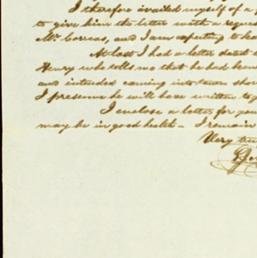 I therefore availed myself of a
to give him the letter with a reques
Mr. Corcoss, and I am expecting to hea
At last I had a letter
Henry who tells me that he had been
and intended coming into town shor
I presume he will have written to y
I enclose a letter for you
may be in good health - I remain
Very tru